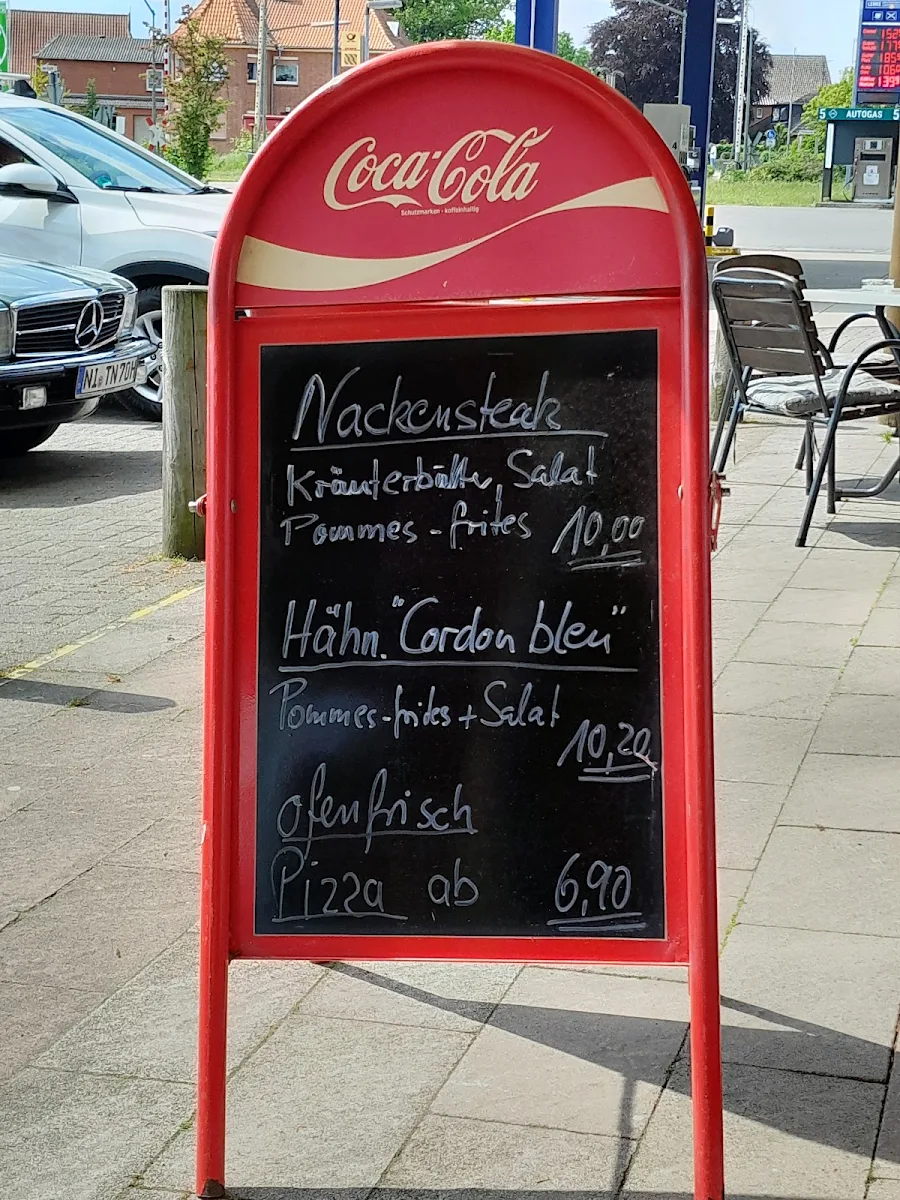 Coca-Cola
Schutzmarken · koffeinhaltig
Nackensteak
Kräuterbutter, Salat
Pommes-frites 10,00
Hähn. "Cordon bleu"
Pommes-frites + Salat
10,20
ofenfrisch
Pizza ab 6,90
NI TN 70H
5 AUTOGAS 5